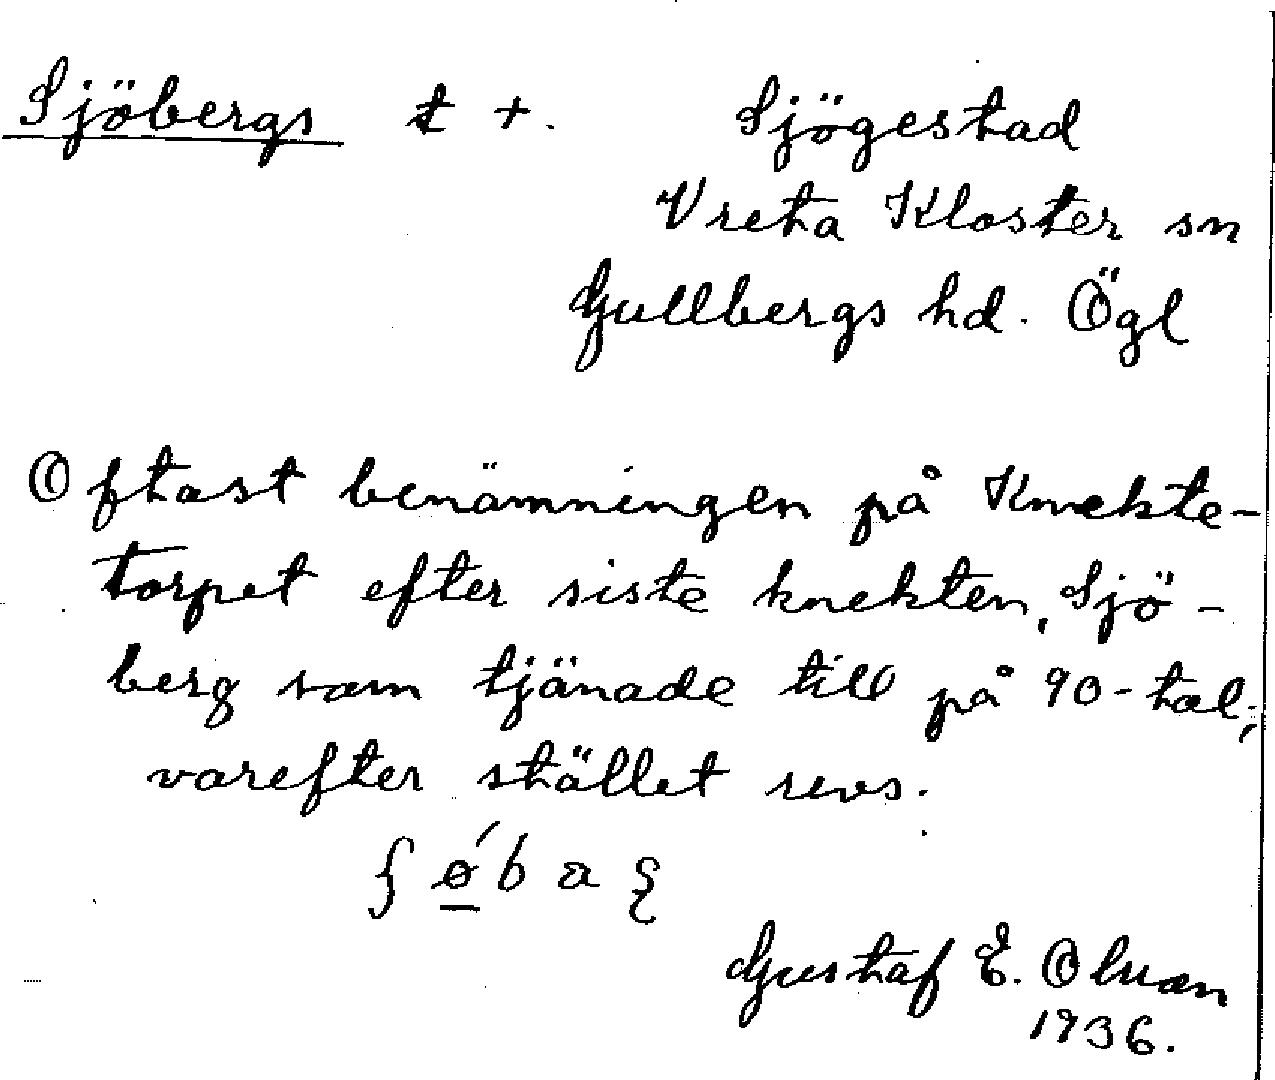 Sjöbergs t +. Sjögestad
Vreta Kloster sn
Gullbergs hd. Ögl
Oftast benämningen på Knekte-
torpet efter siste knekten, Sjö-
berg som tjänade till på 90-tal;
varefter stället revs.
Gustaf E. Olsson
1936.